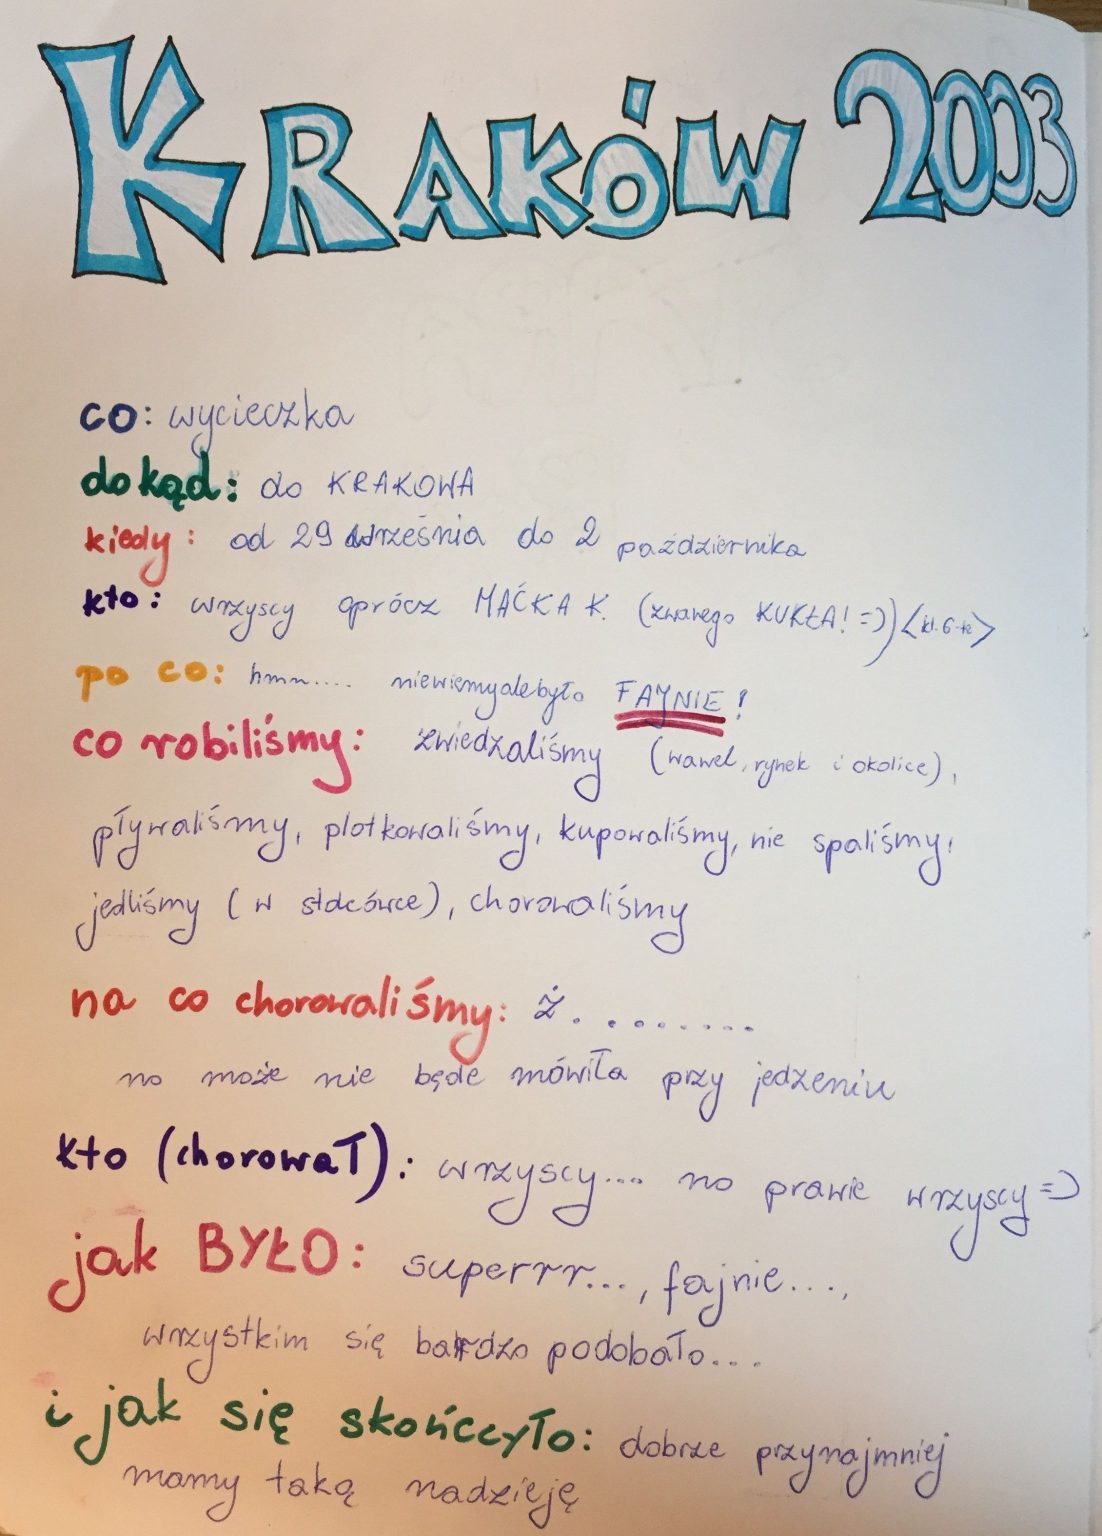 KRAKÓW 2003
co: wycieczka
dokąd: do KRAKOWA
kiedy: od 29 września do 2 października
kto: wszyscy oprócz MAĆKA K. (zwanego KUKŁA! =)) <kl. 6 te>
po co: hmn.... niewiemyalebyło FAJNIE!
co robiliśmy: zwiedzaliśmy (wawel, rynek i okolice),
pływaliśmy, plotkowaliśmy, kupowaliśmy, nie spaliśmy,
jedliśmy (w stołówce), chorowaliśmy
na co chorowaliśmy: ż. ........
no może nie będe mówiła przy jedzeniu
kto (chorował): wszyscy.... no prawie wszyscy =)
jak BYŁO: superrr..., fajnie...,
wszystkim się bardzo podobało...
i jak się skończyło: dobrze przynajmniej
mamy taką nadzieję